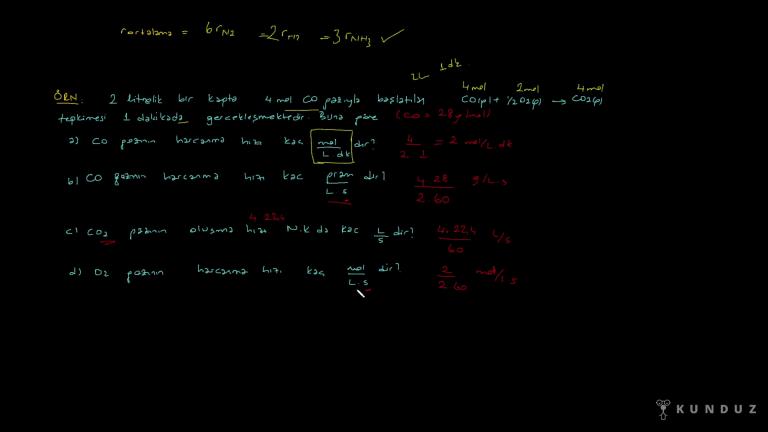 rortalama = 6rN2 = 2rH2 = 3rNH3
2L 1dk.
4mol 2mol 4mol
ÖRN: 2 litrelik bir kapta 4 mol CO gazıyla başlatılan CO(g) + 1/2O2(g) → CO2(g)
tepkimesi 1 dakikada gerçekleşmektedir. Buna göre (CO = 28 g/mol)
a) CO gazının harcanma hızı kaç mol/L.dk dır? 4/2.1 = 2 mol/L dk
b) CO gazının harcanma hızı kaç gram/L.s dir? 4.28/2.60 g/L.s
4.22,4
c) CO2 gazının oluşma hızı N.K da kaç L/s dir? 4.22,4/60 L/s
d) O2 gazının harcanma hızı kaç mol/L.s dir? 2/2.60 mol/L s
KUNDUZ